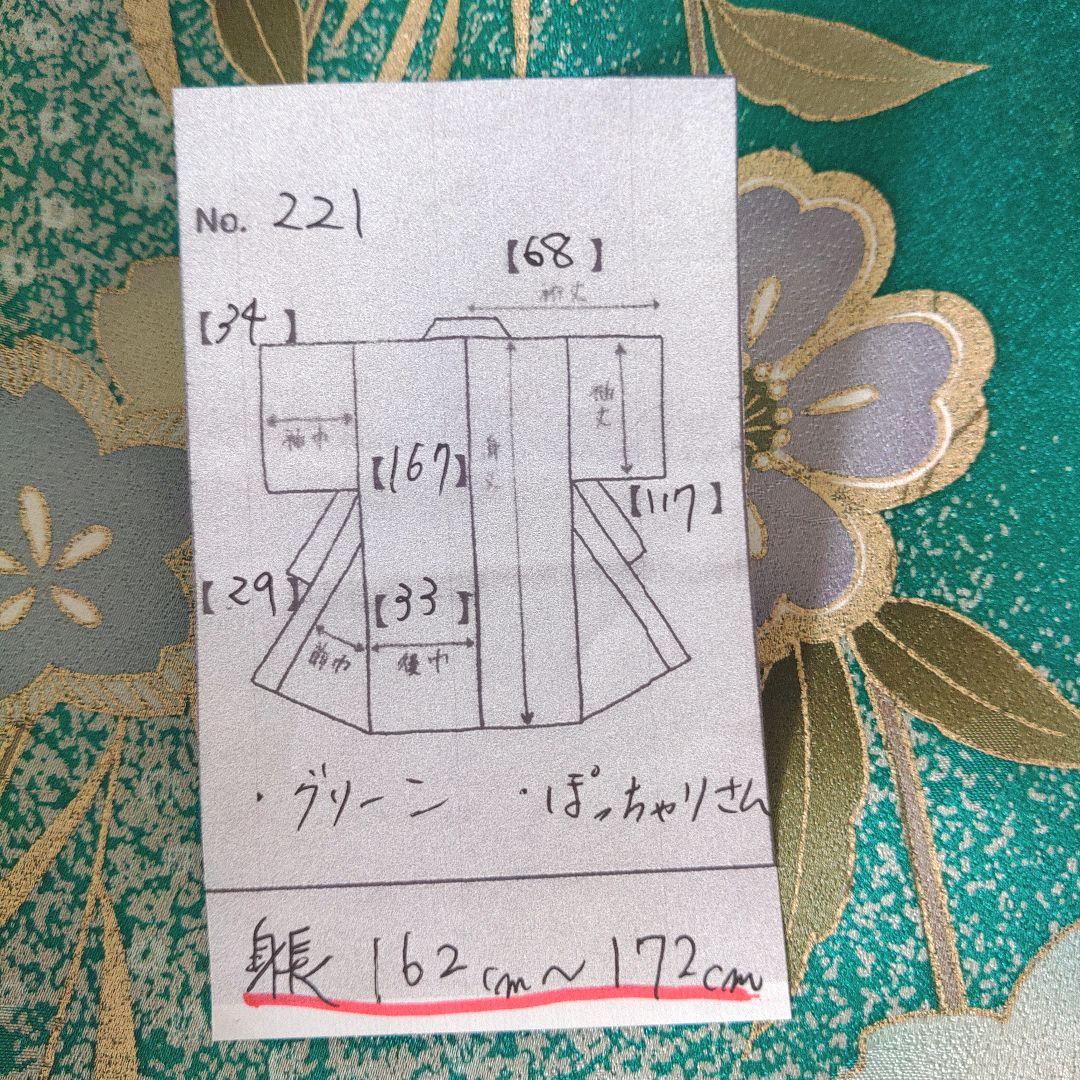 No. 221
【68】
裄丈
【34】
袖巾
袖丈
【167】
身丈
【117】
【29】
【33】
前巾
後巾
・グリーン ・ぽっちゃりさん
身長 162cm〜172cm